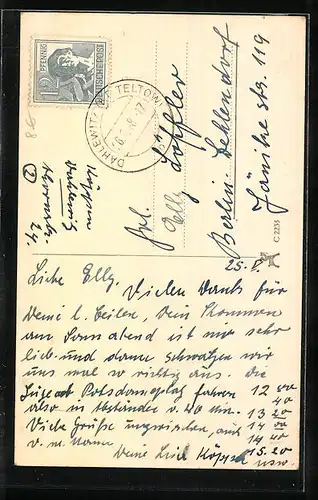 12 PFENNIG
DEUTSCHE POST
DAHLEWITZ KR. TELTOW
Frl.
Elly Löffler
Berlin-Zehlendorf
Jänickestr. 119
C 2235
24.
25. 8.
Liebe Elly. Vielen Dank für
Deine l. Zeilen, Dein Kommen
am Sonnabend ist mir sehr
lieb und dann schwatzen wir
uns mal so richtig aus. Die
Züge ab Potsdamerplatz fahren 12 00
also in Abständen v. 40 Min. 12 40
Viele Grüße inzwischen, auch 13 20
v. m. Mann 14 00
14 40
Deine Liesl Köppen 15.20
usw.